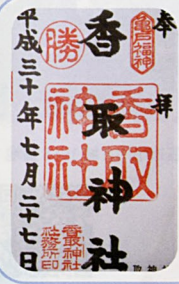 奉拝
亀戸福神
香取神社
香取神社
勝
平成三十年七月二十七日
香取神社社務所印